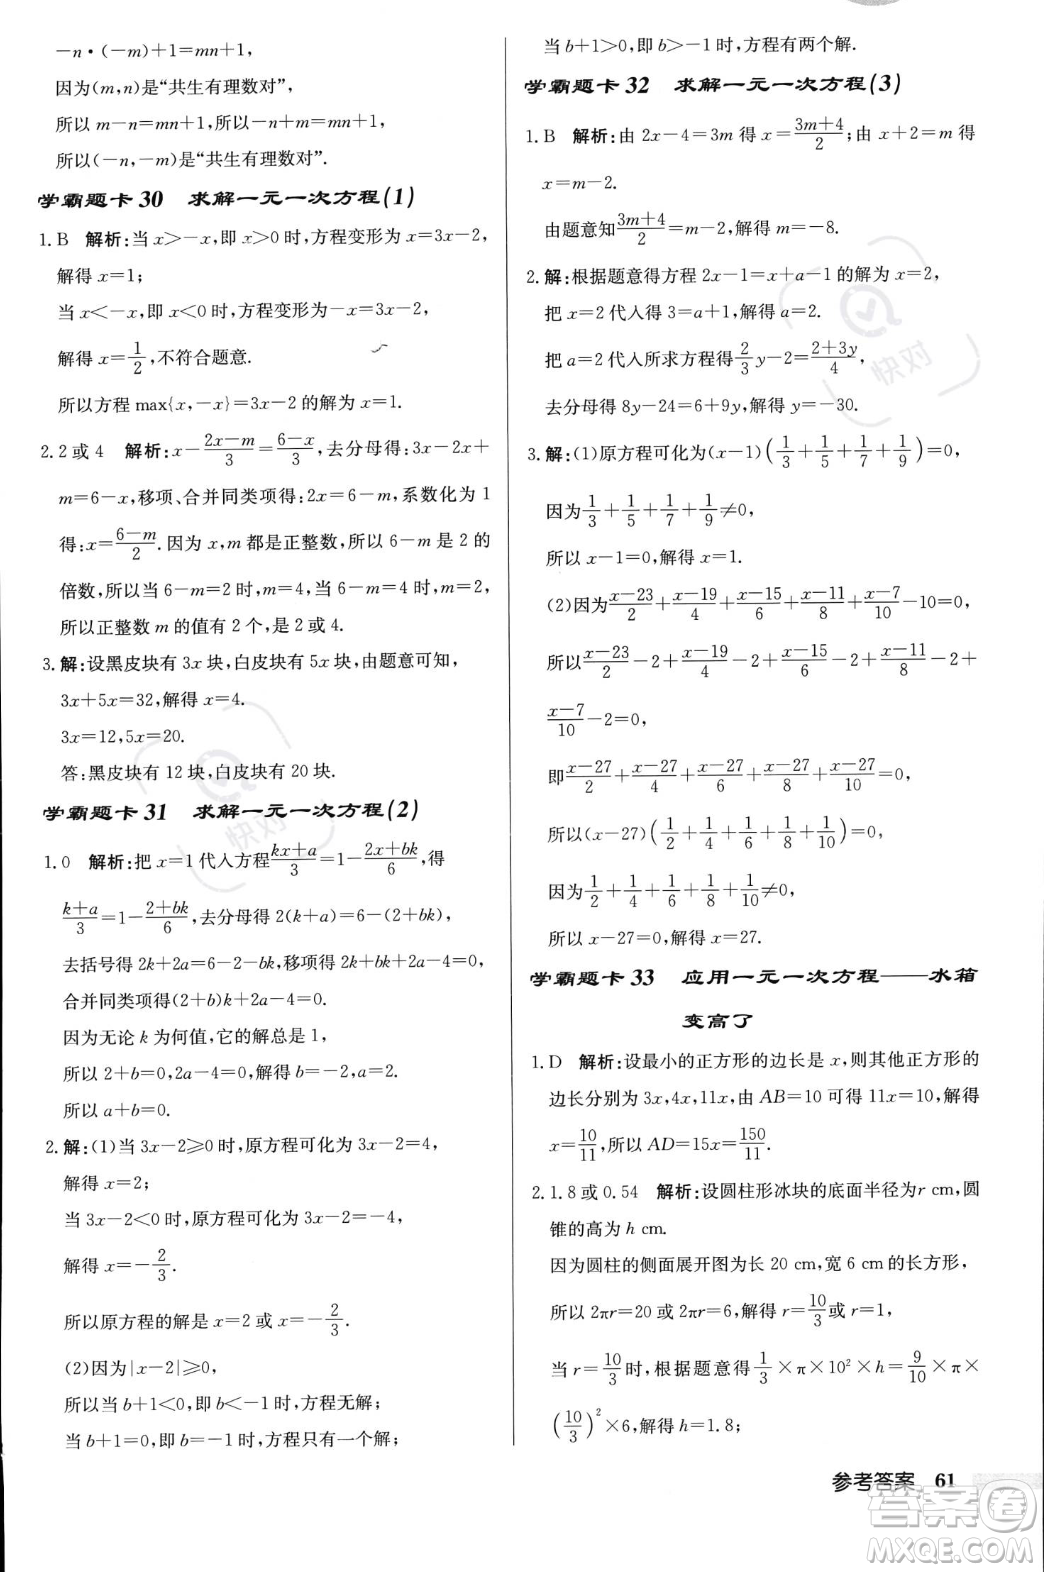 －n·(－m)＋1＝mn＋1,
因为(m,n)是“共生有理数对”,
所以 m－n＝mn＋1,所以－n＋m＝mn＋1,
所以(－n,－m)是“共生有理数对”.
学霸题卡 30 求解一元一次方程(1)
1.B 解析:当 x＞－x,即 x＞0 时,方程变形为 x＝3x－2,
解得 x＝1;
当 x＜－x,即 x＜0 时,方程变形为－x＝3x－2,
解得 x＝1/2,不符合题意.
所以方程 max{x,－x}＝3x－2 的解为 x＝1.
2.2 或 4 解析:x－(2x－m)/3＝(6－x)/3,去分母得:3x－2x＋
m＝6－x,移项、合并同类项得:2x＝6－m,系数化为 1
得:x＝(6－m)/2.因为 x,m 都是正整数,所以 6－m 是 2 的
倍数,所以当 6－m＝2 时,m＝4;当 6－m＝4 时,m＝2,
所以正整数 m 的值有 2 个,是 2 或 4.
3.解:设黑皮块有 3x 块,白皮块有 5x 块,由题意可知,
3x＋5x＝32,解得 x＝4.
3x＝12,5x＝20.
答:黑皮块有 12 块,白皮块有 20 块.
学霸题卡 31 求解一元一次方程(2)
1.0 解析:把 x＝1 代入方程(kx＋a)/3＝1－(2x＋bk)/6,得
(k＋a)/3＝1－(2＋bk)/6,去分母得 2(k＋a)＝6－(2＋bk),
去括号得 2k＋2a＝6－2－bk,移项得 2k＋bk＋2a－4＝0,
合并同类项得(2＋b)k＋2a－4＝0.
因为无论 k 为何值,它的解总是 1,
所以 2＋b＝0,2a－4＝0,解得 b＝－2,a＝2.
所以 a＋b＝0.
2.解:(1)当 3x－2≥0 时,原方程可化为 3x－2＝4,
解得 x＝2;
当 3x－2＜0 时,原方程可化为 3x－2＝－4,
解得 x＝－2/3.
所以原方程的解是 x＝2 或 x＝－2/3.
(2)因为|x－2|≥0,
所以当 b＋1＜0,即 b＜－1 时,方程无解;
当 b＋1＝0,即 b＝－1 时,方程只有一个解;
当 b＋1＞0,即 b＞－1 时,方程有两个解.
学霸题卡 32 求解一元一次方程(3)
1.B 解析:由 2x－4＝3m 得 x＝(3m＋4)/2;由 x＋2＝m 得
x＝m－2.
由题意知(3m＋4)/2＝m－2,解得 m＝－8.
2.解:根据题意得方程 2x－1＝x＋a－1 的解为 x＝2,
把 x＝2 代入得 3＝a＋1,解得 a＝2.
把 a＝2 代入所求方程得2/3y－2＝(2＋3y)/4,
去分母得 8y－24＝6＋9y,解得 y＝－30.
3.解:(1)原方程可化为(x－1)(1/3＋1/5＋1/7＋1/9)＝0,
因为1/3＋1/5＋1/7＋1/9≠0,
所以 x－1＝0,解得 x＝1.
(2)因为(x－23)/2＋(x－19)/4＋(x－15)/6＋(x－11)/8＋(x－7)/10－10＝0,
所以(x－23)/2－2＋(x－19)/4－2＋(x－15)/6－2＋(x－11)/8－2＋
(x－7)/10－2＝0,
即(x－27)/2＋(x－27)/4＋(x－27)/6＋(x－27)/8＋(x－27)/10＝0,
所以(x－27)(1/2＋1/4＋1/6＋1/8＋1/10)＝0,
因为1/2＋1/4＋1/6＋1/8＋1/10≠0,
所以 x－27＝0,解得 x＝27.
学霸题卡 33 应用一元一次方程——水箱
变高了
1.D 解析:设最小的正方形的边长是 x,则其他正方形的
边长分别为 3x,4x,11x,由 AB＝10 可得 11x＝10,解得
x＝10/11,所以 AD＝15x＝150/11.
2.1.8 或 0.54 解析:设圆柱形冰块的底面半径为r cm,圆
锥的高为 h cm.
因为圆柱的侧面展开图为长 20 cm,宽 6 cm的长方形,
所以 2πr＝20 或 2πr＝6,解得 r＝10/3或 r＝1,
当 r＝10/3时,根据题意得1/3×π×10²×h＝9/10×π×
(10/3)²×6,解得 h＝1.8;
参考答案 61
快对
快对
答案圈
MXQE.COM